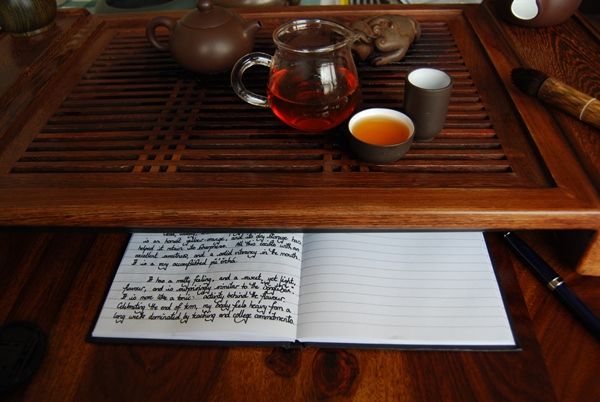 is an honest yellow-orange, and its dry storage has
helped it retain its sharpness. All this cools with an
excellent sweetness, and a solid in the mouth.
It is a very accomplished pu'ercha.
It has a malty feeling, and a sweet, yet light,
flavour, and is surprisingly similar to the
It is more like a tonic: activity behind the flavour.
Celebrating the end of term, my body feels heavy from a
long week dominated by teaching and college commitments.